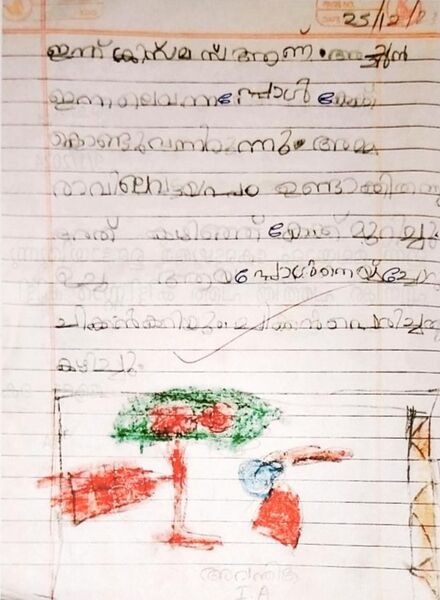 25/12/
ഇന്ന് ക്രിസ്മസ് ആണ്. അച്ഛൻ
ഇന്നലെ വന്നപ്പോൾ കേക്ക്
കൊണ്ടുവന്നിരുന്നു. അമ്മ
രാവിലെ ഉണ്ടാക്കിയിരുന്നു
അത് കഴിഞ്ഞ് കേക്ക് മുറിച്ചു
ഉച്ച ആയപ്പോൾ
ചിക്കൻകറിയും ചിക്കൻ
കഴിച്ചു.
അവന്തിക
I.A